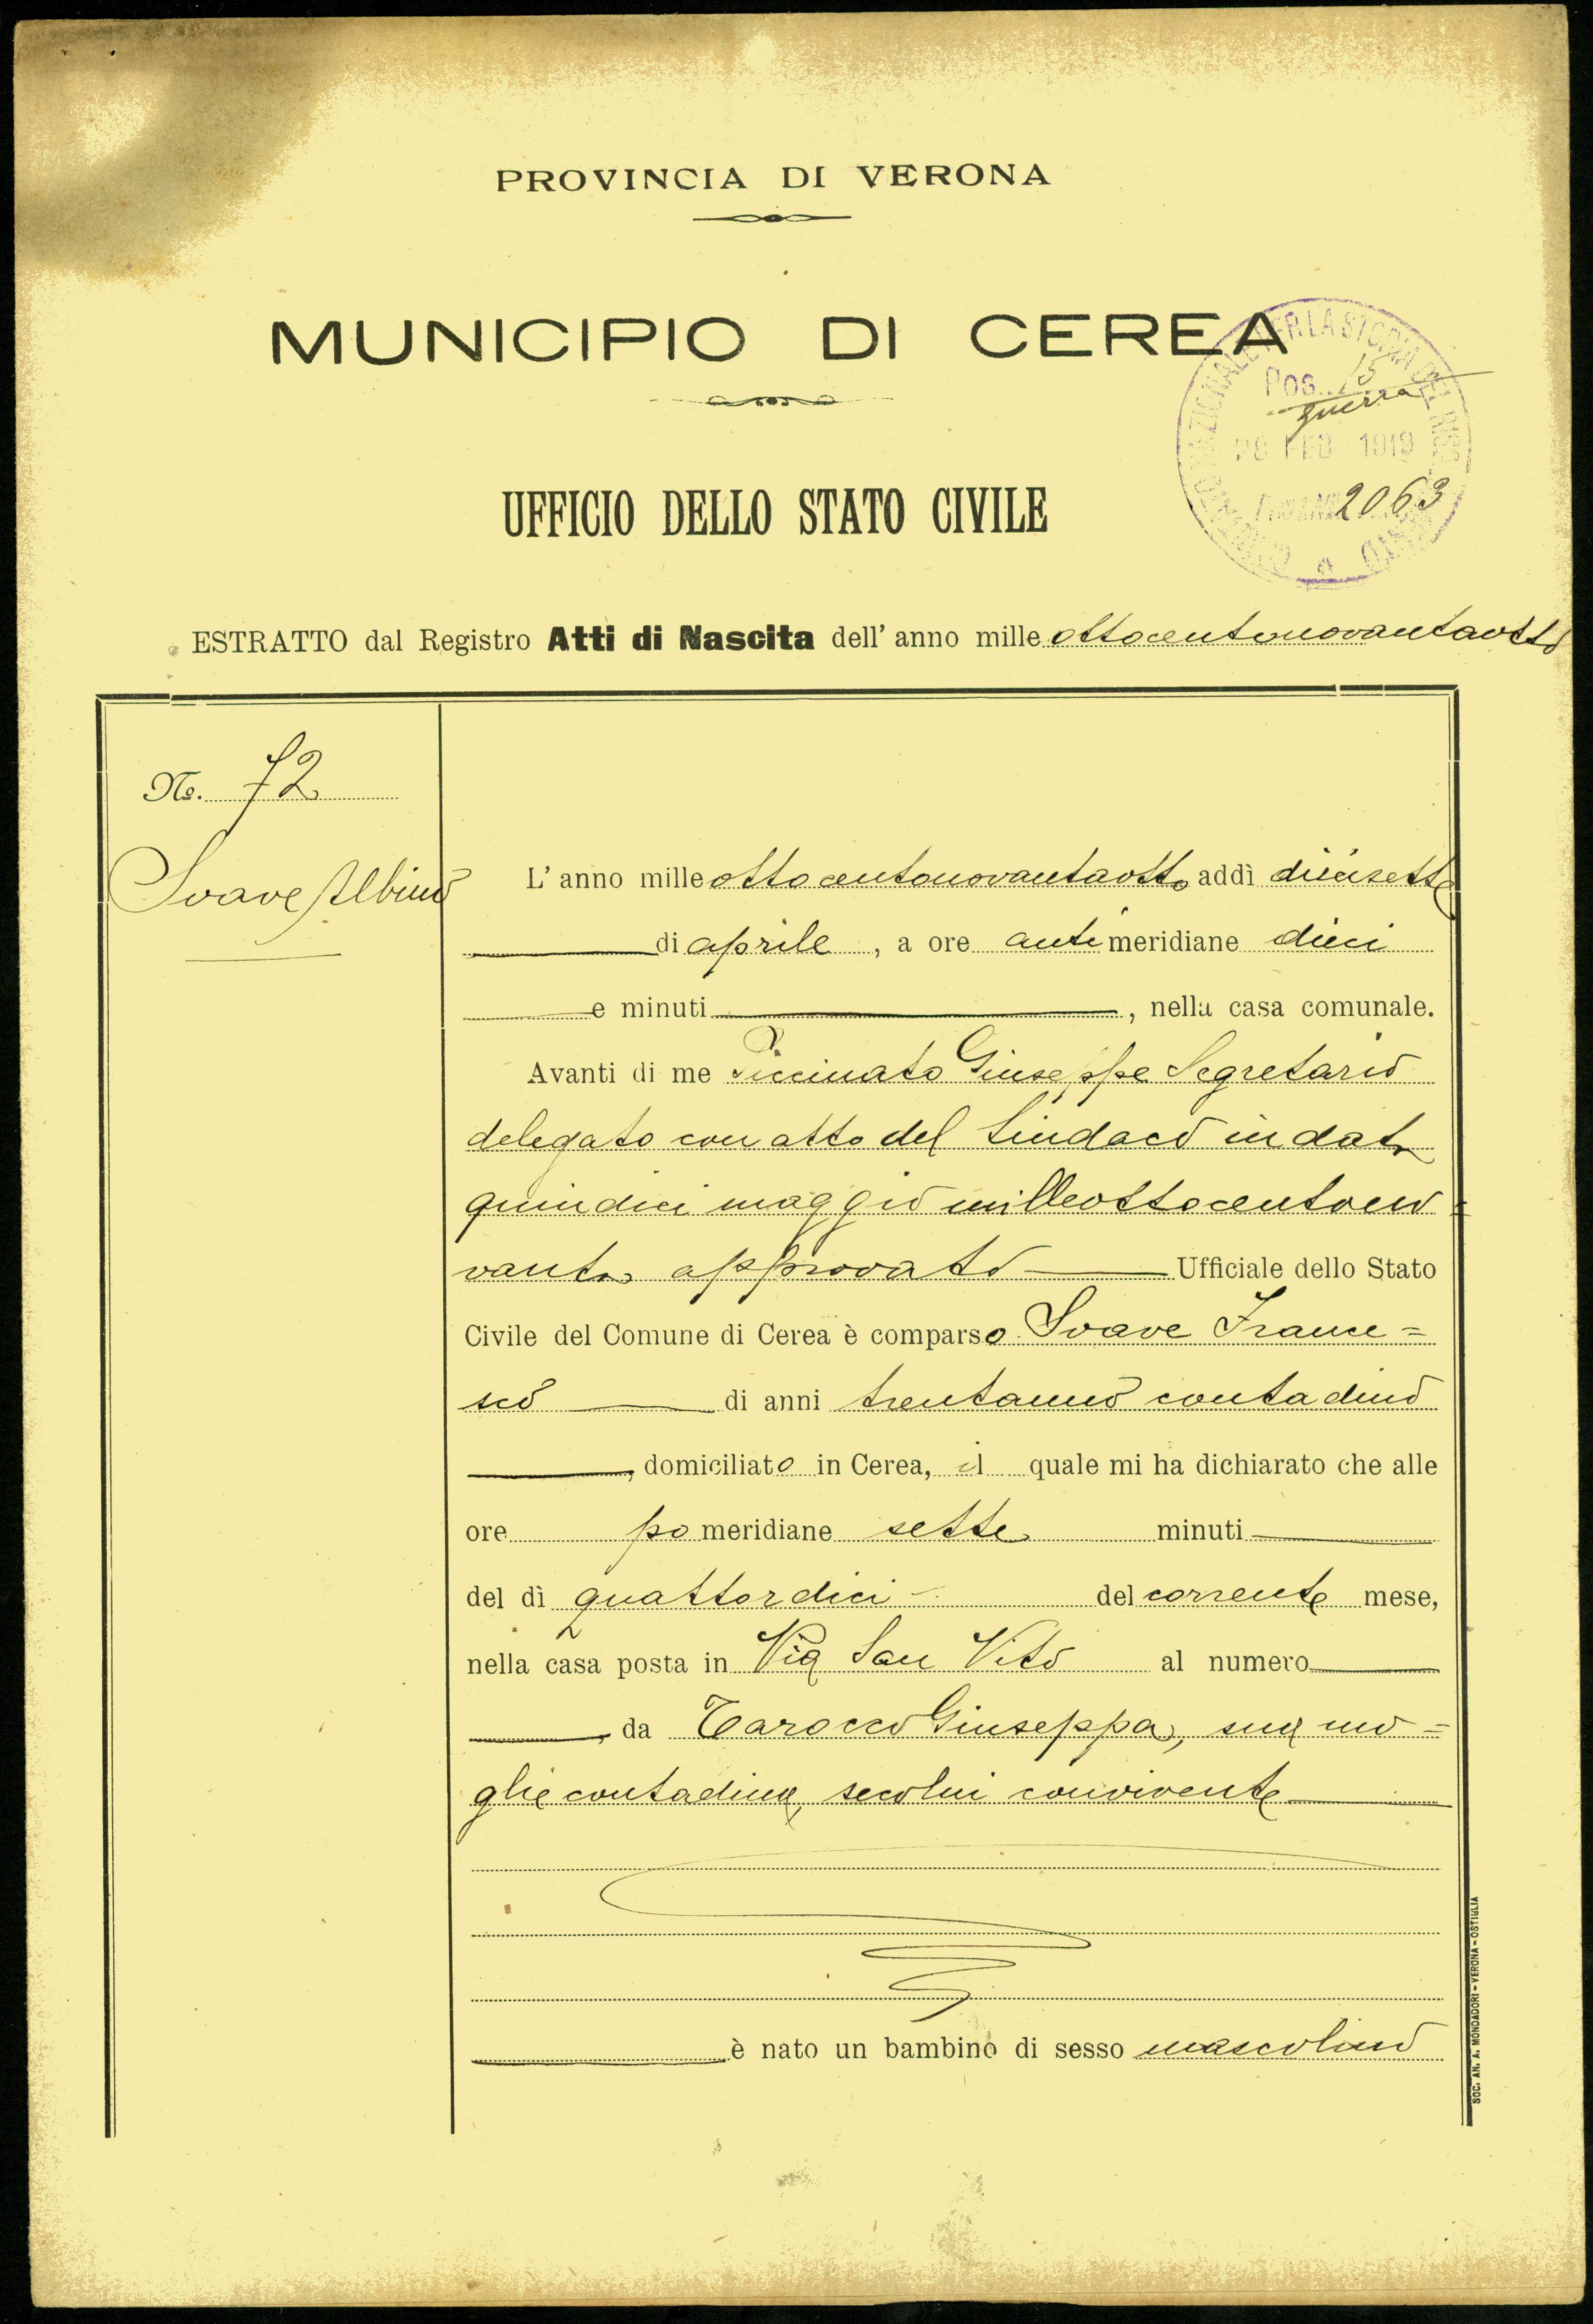 PROVINCIA DI VERONA
MUNICIPIO DI CEREA
UFFICIO DELLO STATO CIVILE
NAZIONALE PER LA STORIA DEL RISORGIMENTO
Pos. 15
guerra
28 FEB 1919
2063
ESTRATTO dal Registro Atti di Nascita dell' anno mille ottocentonovantaotto
No. 72
Soave Albino
L' anno mille ottocentonovantaotto addì diecisette
di aprile, a ore antimeridiane dieci
e minuti, nella casa comunale.
Avanti di me Piccinato Giuseppe Segretario
delegato con atto del Sindaco in data
quindici maggio milleottocentono=
vanta approvato Ufficiale dello Stato
Civile del Comune di Cerea è comparso Soave France=
sco di anni trentanno contadino
, domiciliato in Cerea, il quale mi ha dichiarato che alle
ore pomeridiane sette minuti
del dì quattordici del corrente mese,
nella casa posta in Via San Vito al numero
, da Tarocco Giuseppa, sua mo=
glie contadina, secolui convivente
è nato un bambino di sesso mascolino
SOC. AN. A. MONDADORI - VERONA - OSTIGLIA